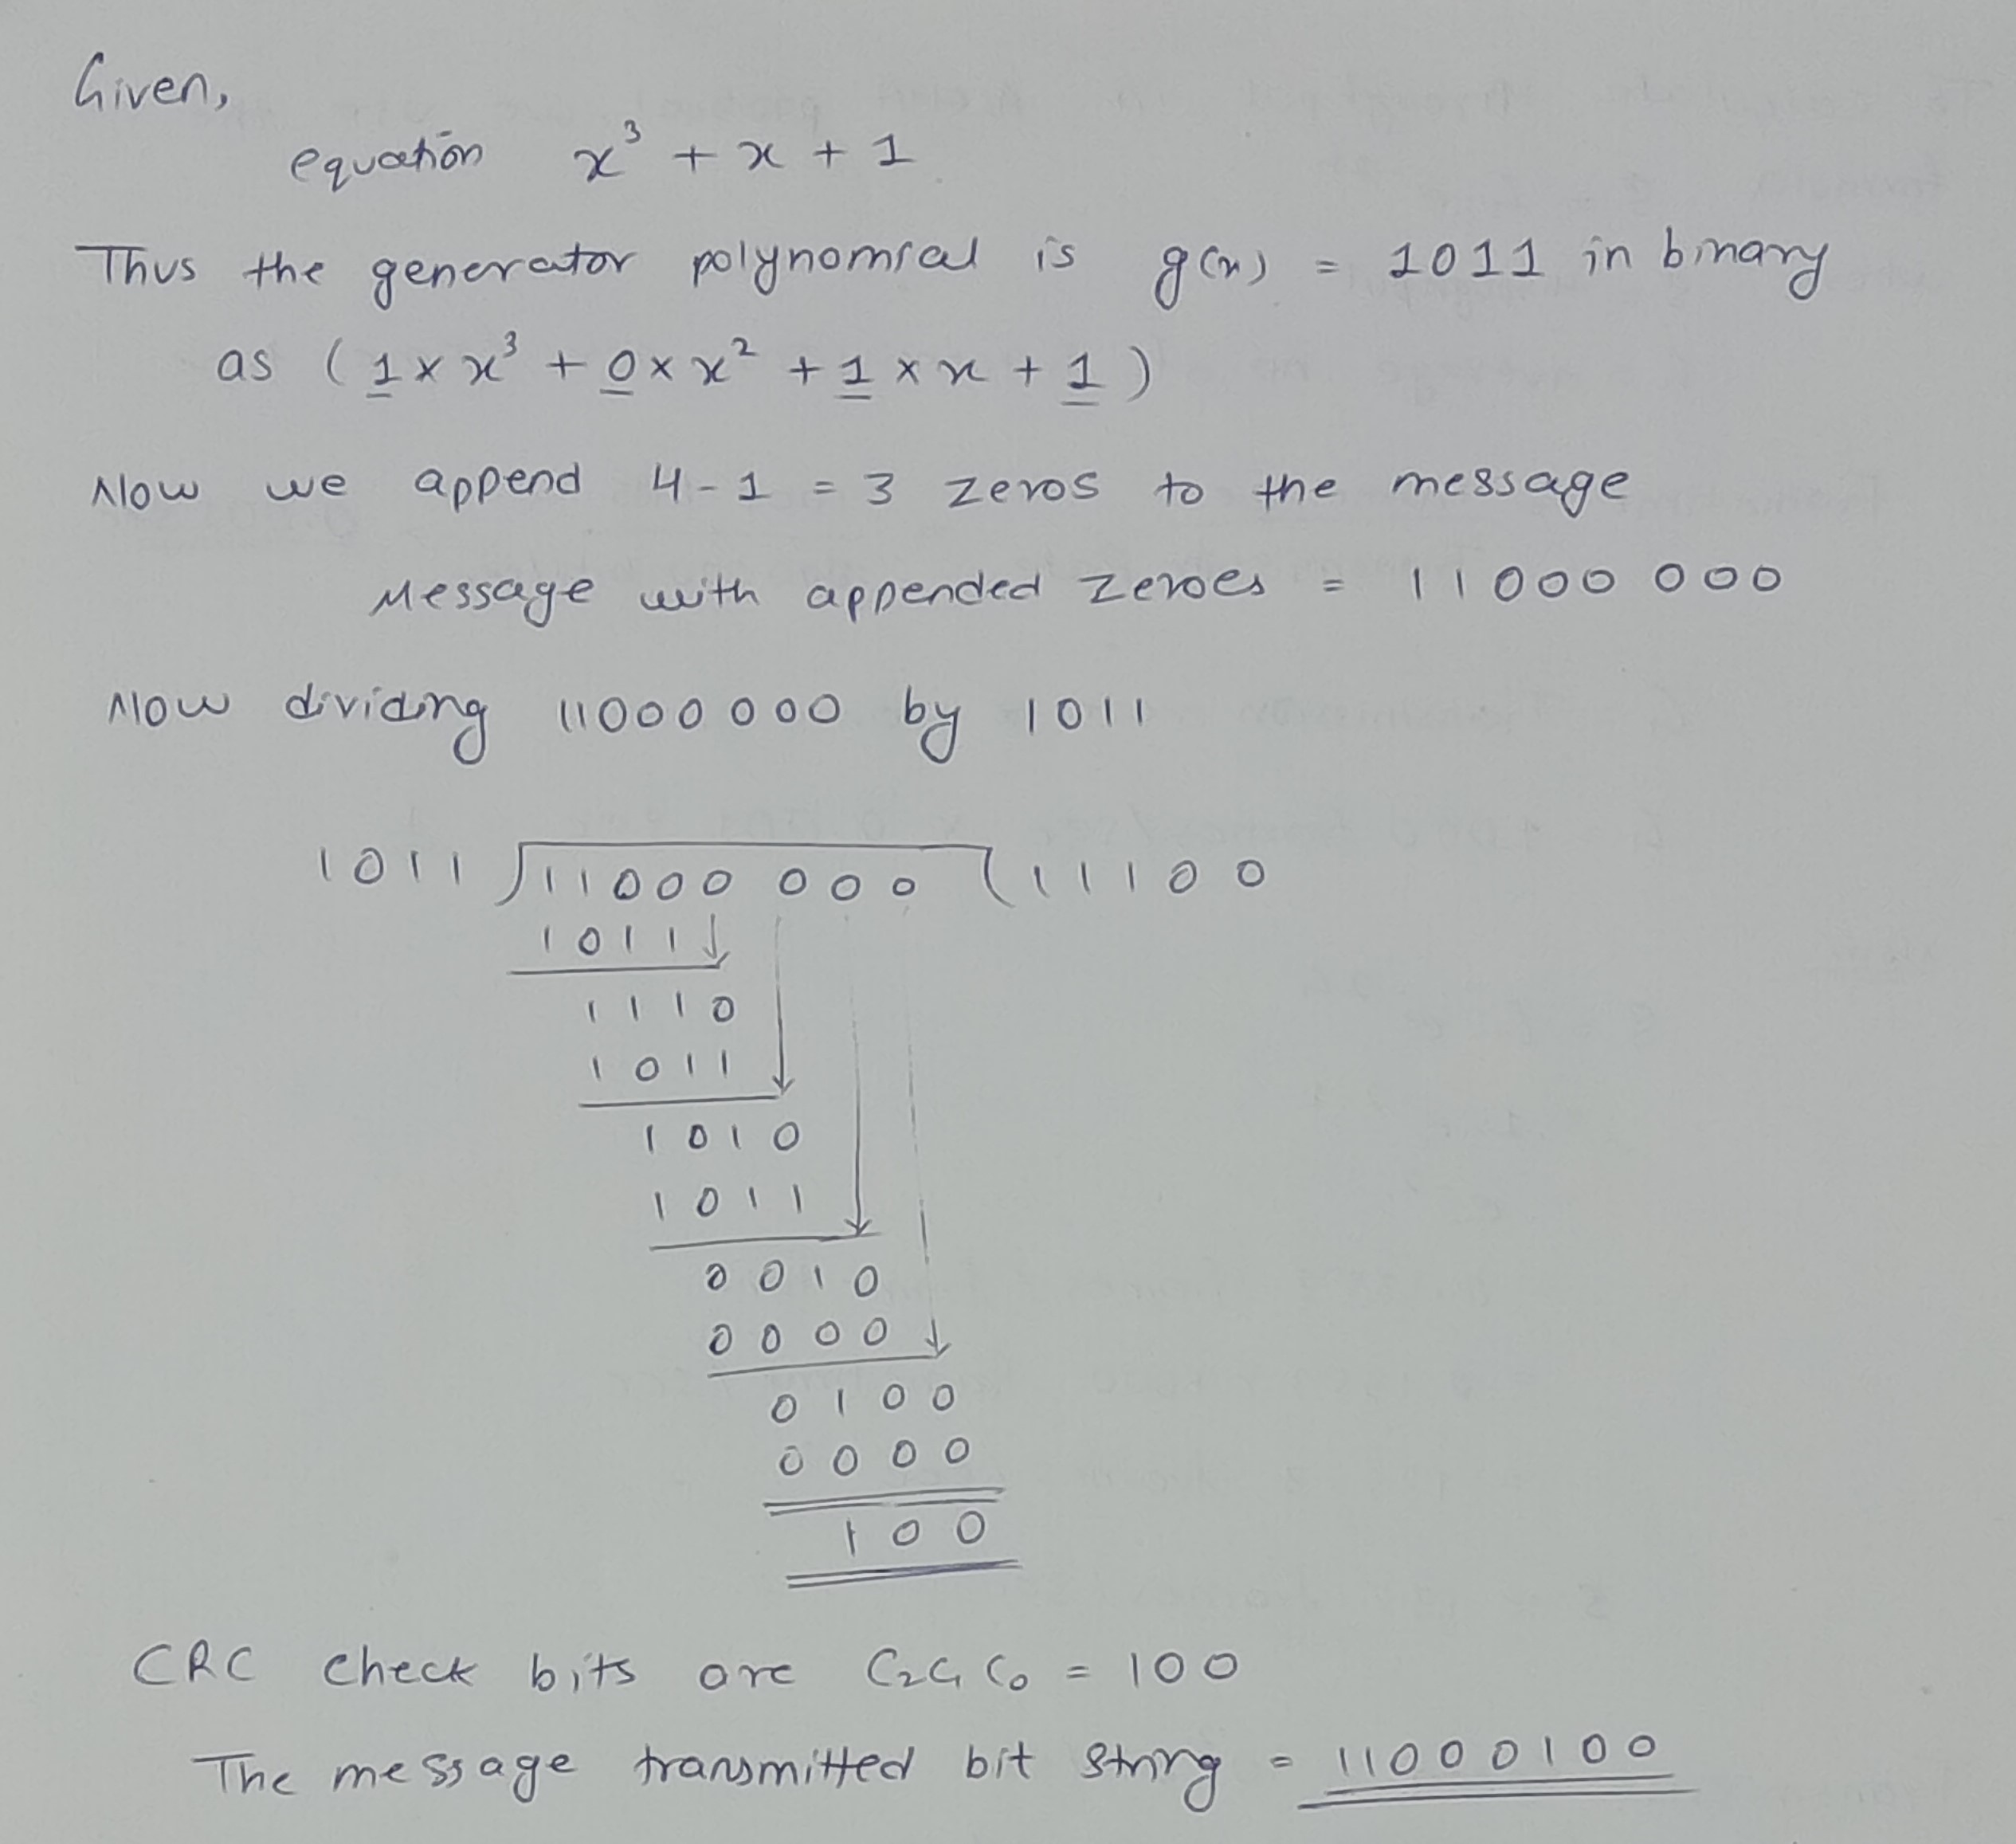 Given,
equation x³ + x + 1
Thus the generator polynomial is g(x) = 1011 in binary
as (1 × x³ + 0 × x² + 1 × x + 1)
Now we append 4-1 = 3 zeros to the message
Message with appended zeroes = 11000 000
Now dividing 11000 000 by 1011
1011 ) 11000 000 ( 11100
1011
1110
1011
1010
1011
0010
0000
0100
0000
100
CRC check bits are C₂C₁C₀ = 100
The message transmitted bit string = 11000100